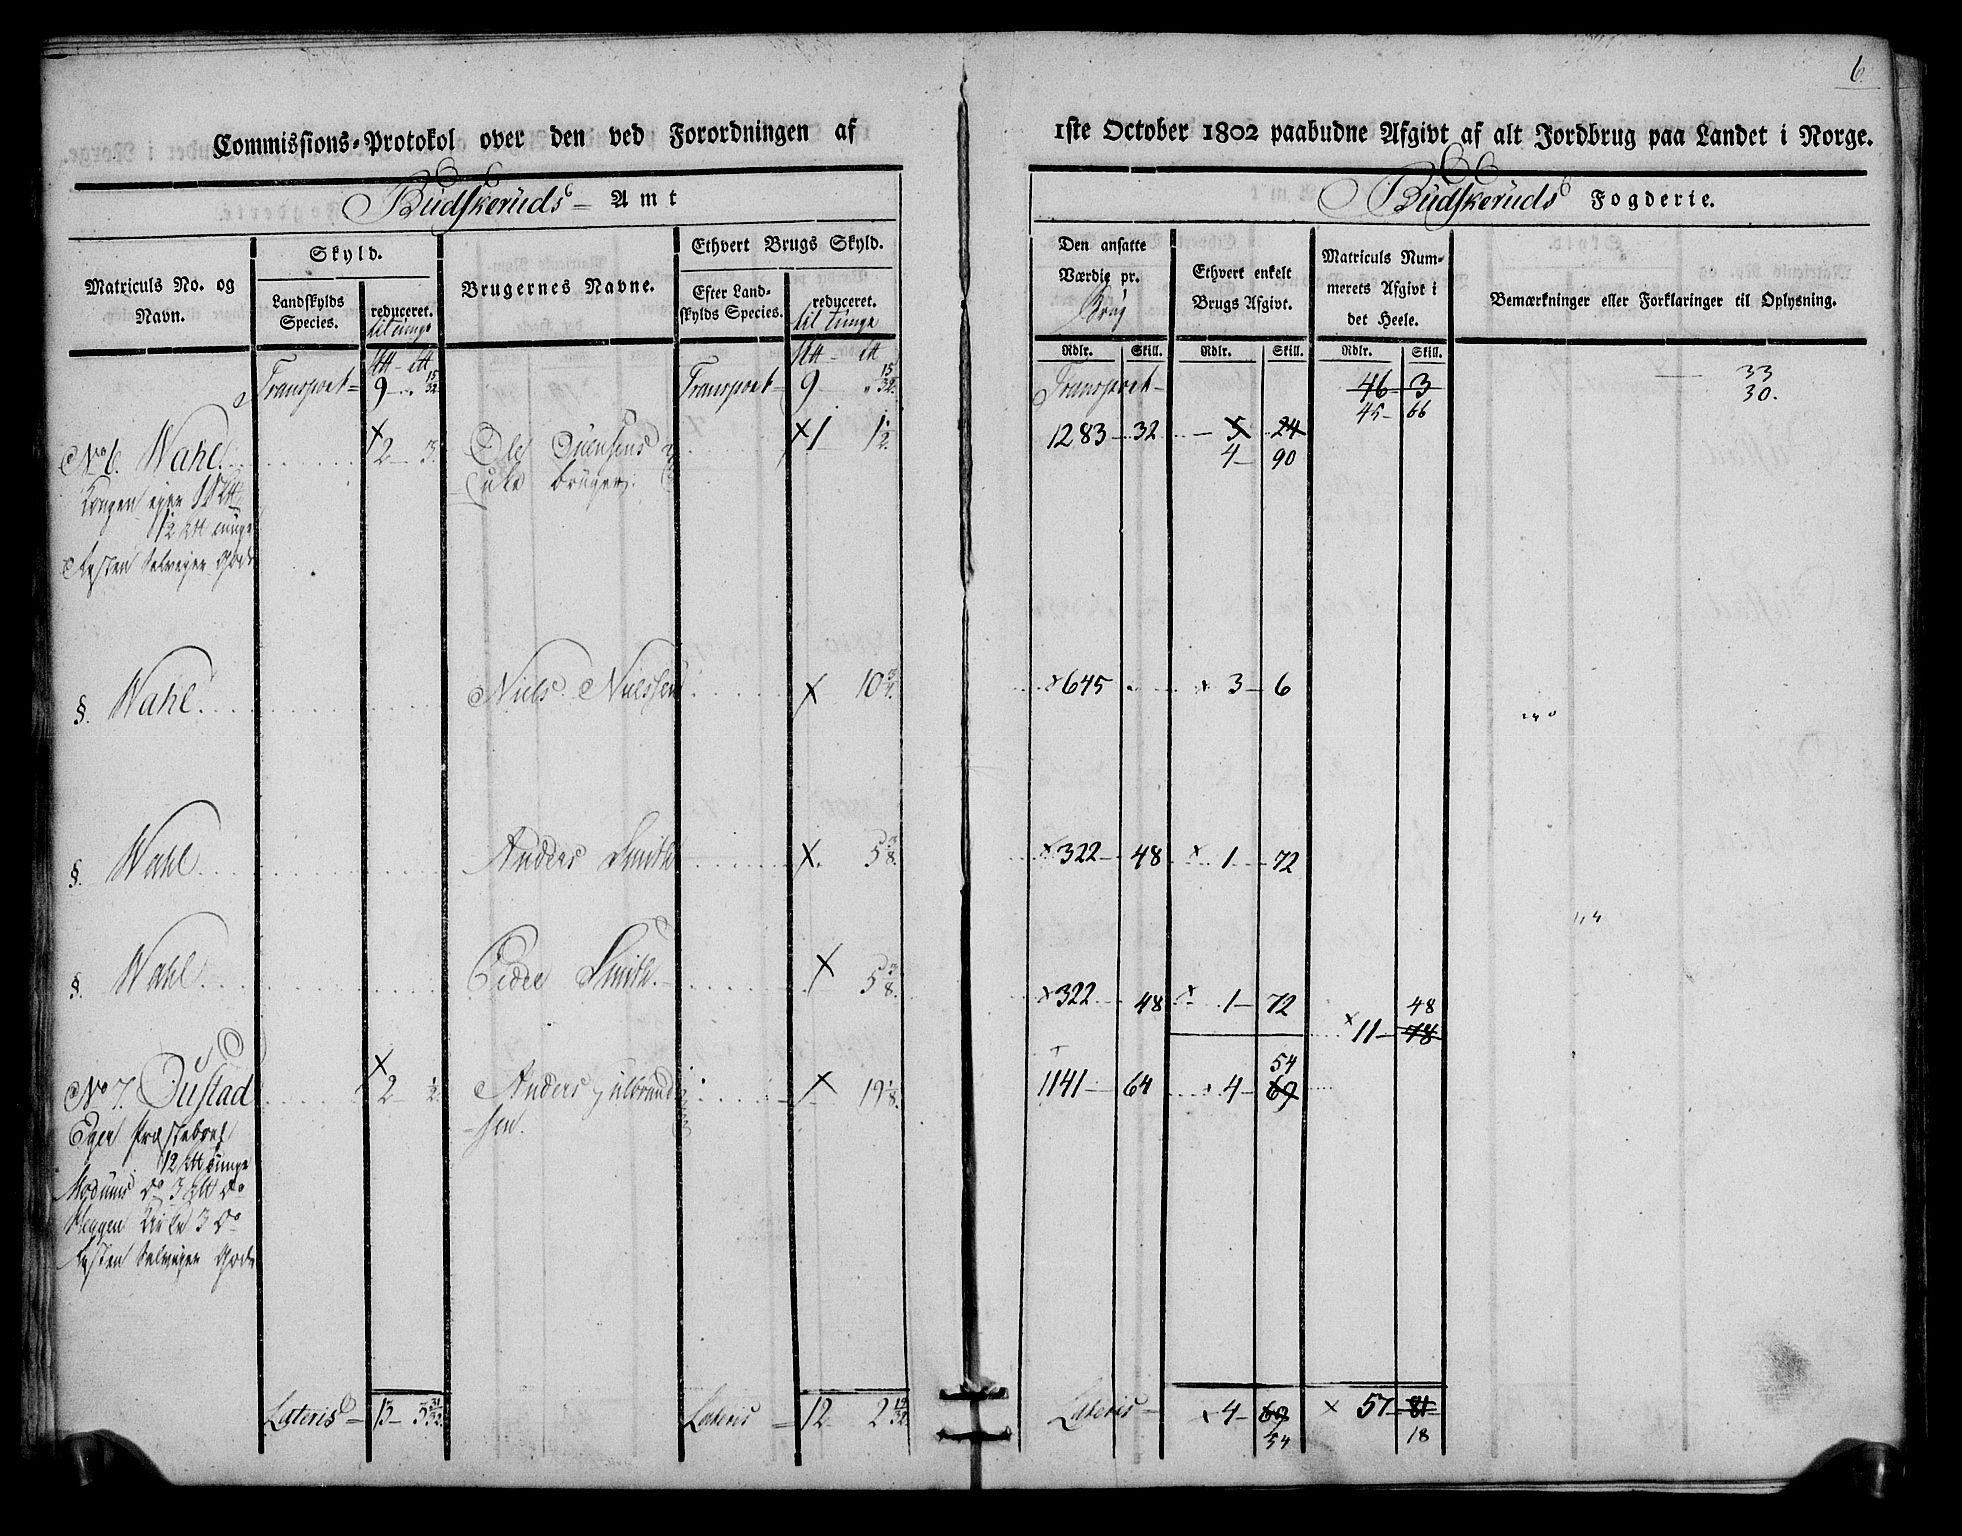 6
Commissions-Protokol over den ved Forordningen af 1ste October 1802 paabudne Afgivt af alt Jordbrug paa Landet i Norge.
Budskeruds Amt
Budskeruds Fogderie.
Matriculs No. og Navn.
Skyld.
Landskylds Species.
reduceret.
til tunge
Brugernes Navne.
Ethvert Brugs Skyld.
Efter Landskylds Species.
reduceret.
til tunge
Den ansatte Værdie pr. Brug
Ethvert enkelt Brugs Afgivt.
Matriculs Nummerets Afgivt i det Heele.
Bemærkninger eller Forklaringer til Oplysning.
Rdlr. Skill. Rdlr. Skill. Rdlr. Skill.
Transport 9 " 15/32 Transport 9 " 15/32 Transport 46 3 33
45 66 30.
No 6. Wahl 2 3 Ole 1 1 1/2 1283 32 5 24
4 90
Kongen eger
12 tunge
Resten Selveyer Gods
§. Wahl Niels Nielssen 10 3/4 645 3 6
§. Wahl Anders Smith 5 3/8 322 48 1 72
§. Wahl Peder Smith 5 3/8 322 48 1 72 48
11 78
54
No 7. Gustad 2 1/2 Anders Gulbrandsen 19 1/8 1141 64 4 69
Eger Præsteboel
12 tunge
Modums Do 3 Do
Heggen Kirke 3 Do
Resten Selveyer Gods
Lateris 13 3 31/32 Lateris 12 2 19/32 Lateris 4 69 57 81
54 18